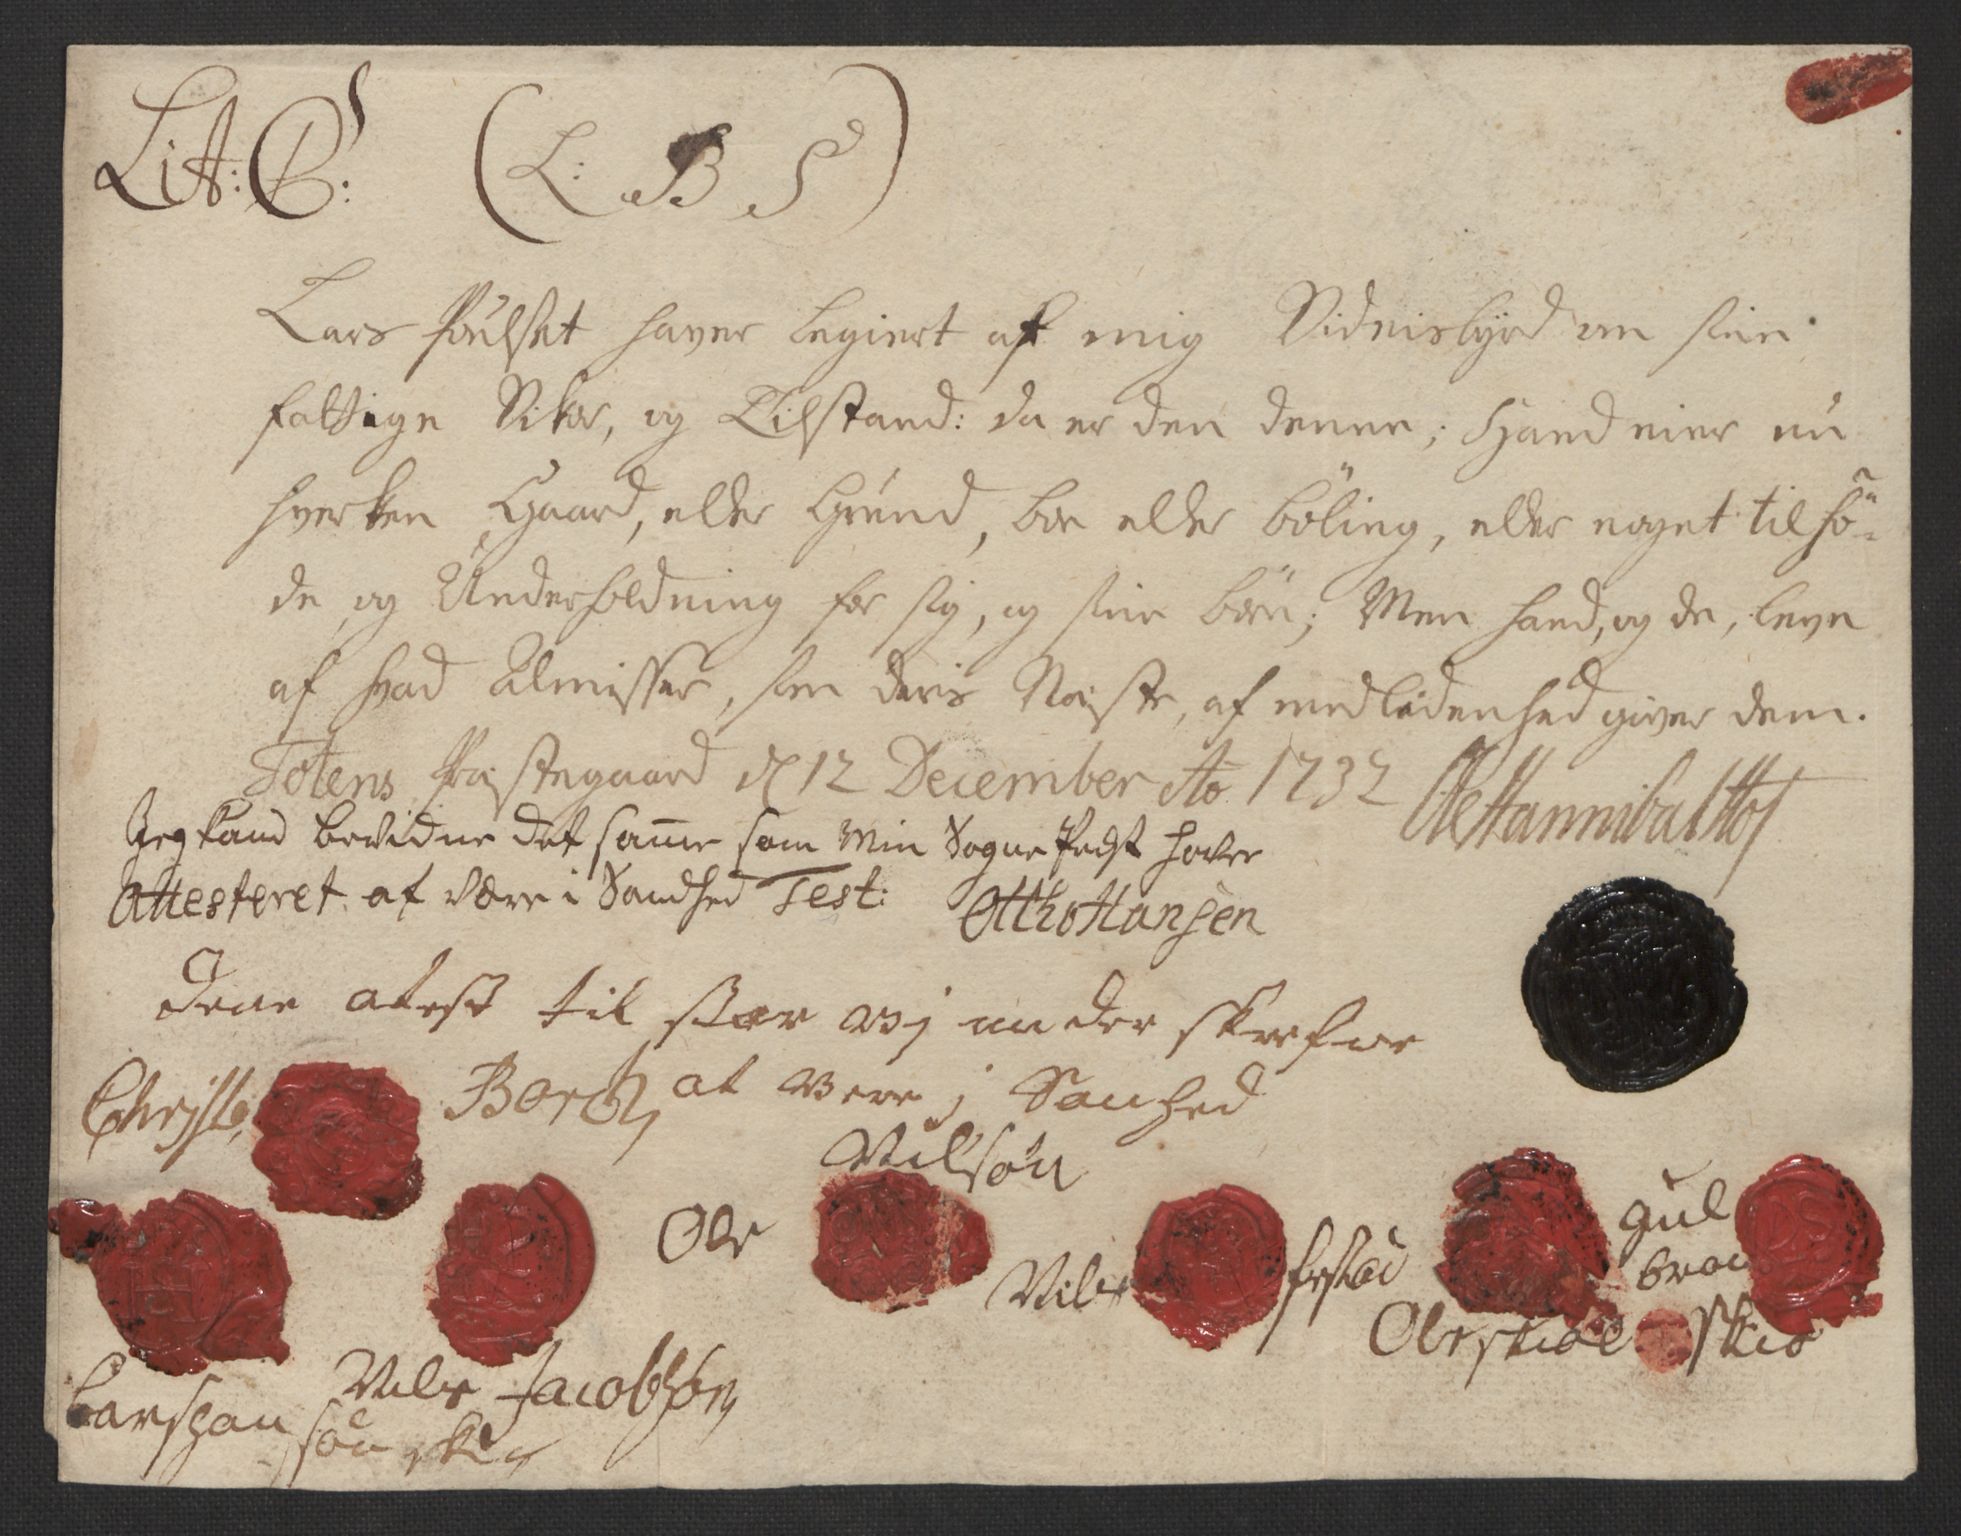 Lit: B:
(L: B S)
Lars Poulset haver begiert af mig Vidnisbyrd om sin
fattige Vilkor, og Tilstand: da er den denne; Hand eier nu
hverken Gaard, eller Grund, boe eller böling, eller noget til fö-
de, og Underholdning for sig, og sine börn; Men hand, og de, leve
af hvad Almisser, som deris Næste, af medlidenhed giver dem.
Totens Præstegaard d 12 December Ao 1732
Jeg kand bevidne det samme som Min Sogne Præst haver
Attesteret at være i Sandhed Test: Ottho Hansen
Dene atest til staar vj under skrefne
at vere j Sanhed
Christo Borch
Ole Nilsøn
Nils
gul
bran
Ole skiøl
skio
Nils Jacobsøn
Lars han
søn